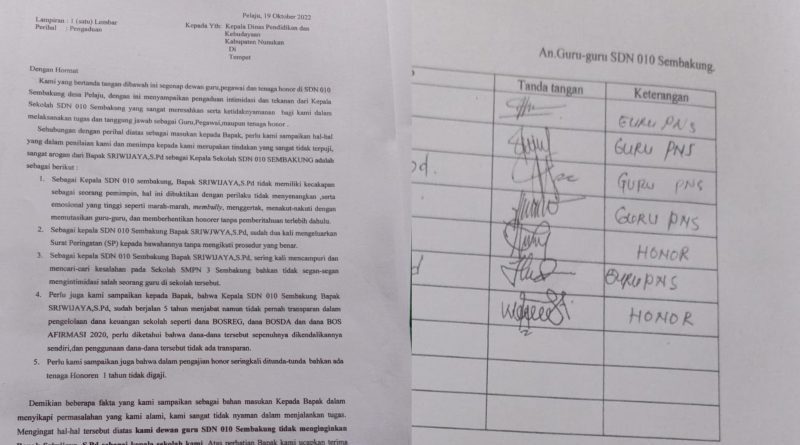 Pelaju, 19 Oktober 2022
Lampiran : 1 (satu) Lembar
Perihal : Pengaduan
Kepada Yth: Kepala Dinas Pendidikan dan
Kebudayaan
Kabupaten Nunukan
Di
Tempat
Dengan Hormat
Kami yang bertanda tangan dibawah ini segenap dewan guru,pegawai dan tenaga honor di SDN 010
Sembakung desa Pelaju, dengan ini menyampaikan pengaduan intimidasi dan tekanan dari Kepala
Sekolah SDN 010 Sembakung yang sangat meresahkan serta ketidaknyamanan bagi kami dalam
melaksanakan tugas dan tanggung jawab sebagai Guru,Pegawai,maupun tenaga honor .
Sehubungan dengan perihal diatas sebagai masukan kepada Bapak, perlu kami sampaikan hal-hal
yang dalam penilaian kami dan menimpa kepada kami merupakan tindakan yang sangat tidak terpuji,
sangat arogan dari Bapak SRIWIJAYA,S.Pd sebagai Kepala Sekolah SDN 010 SEMBAKUNG adalah
sebagai berikut :
1. Sebagai Kepala SDN 010 sembakung, Bapak SRIWIJAYA,S.Pd tidak memiliki kecakapan
sebagai seorang pemimpin, hal ini dibuktikan dengan perilaku tidak menyenangkan ,serta
emosional yang tinggi seperti marah-marah, membully, menggertak, menakut-nakuti dengan
memutasikan guru-guru, dan memberhentikan honorer tanpa pemberitahuan terlebih dahulu.
2. Sebagai kepala SDN 010 Sembakung Bapak SRIWJWYA,S.Pd, sudah dua kali mengeluarkan
Surat Peringatan (SP) kepada bawahannya tanpa mengikuti prosedur yang benar.
3. Sebagai kepala SDN 010 Sembakung Bapak SRIWIJAYA,S.Pd, sering kali mencampuri dan
mencari-cari kesalahan pada Sekolah SMPN 3 Sembakung bahkan tidak segan-segan
mengintimidasi salah seorang guru di sekolah tersebut.
4. Perlu juga kami sampaikan kepada Bapak, bahwa Kepala SDN 010 Sembakung Bapak
SRIWIJAYA,S.Pd, sudah berjalan 5 tahun menjabat namun tidak pernah transparan dalam
pengelolaan dana keuangan sekolah seperti dana BOSREG, dana BOSDA dan dana BOS
AFIRMASI 2020, perlu diketahui bahwa dana-dana tersebut sepenuhnya dikendalikannya
sendiri,dan penggunaan dana-dana tersebut tidak ada transparan.
5. Perlu kami sampaikan juga bahwa dalam pengajian honor seringkali ditunda-tunda bahkan ada
tenaga Honoren 1 tahun tidak digaji.
Demikian beberapa fakta yang kami sampaikan sebagai bahan masukan Kepada Bapak dalam
menyikapi permasalahan yang kami alami, kami sangat tidak nyaman dalam menjalankan tugas.
Mengingat hal-hal tersebut diatas kami dewan guru SDN 010 Sembakung tidak menginginkan
S.Pd sebagai kepala sekolah kami. Atas perhatian Bapak kami ucapkan terima
An.Guru-guru SDN 010 Sembakung.
Tanda tangan Keterangan
GURU PNS
GURU PNS
GURU PNS
GURU PNS
HONOR
GURU PNS
HONOR